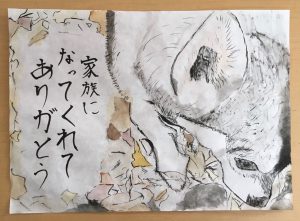 家族に
なってくれて
ありがとう